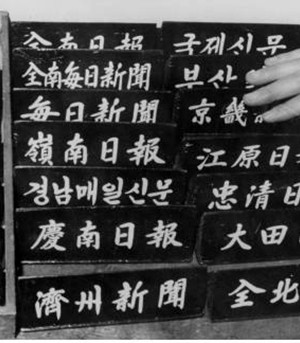 全南日報
全南每日新聞
每日新聞
嶺南日報
경남매일신문
慶南日報
濟州新聞
국제신문
부산
京畿
江原日
忠清日
大田
全北